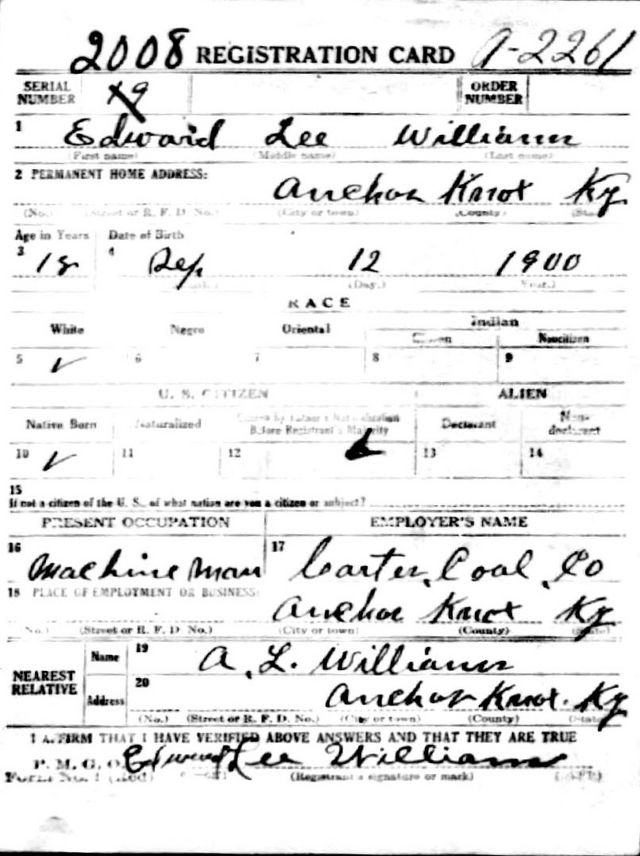 2008 REGISTRATION CARD A-2261
SERIAL NUMBER 49 ORDER NUMBER
1 Edward Lee Williams
(First name) (Middle name) (Last name)
2 PERMANENT HOME ADDRESS:
Anchor Knox Ky
(No.) (Street or R. F. D. No.) (City or town) (County) (State)
Age in Years Date of Birth
3 18 4 Sep 12 1900
(Day.) (Year.)
RACE
White Negro Oriental Indian
Citizen Noncitizen
5 ✓ 6 7 8 9
U. S. CITIZEN ALIEN
Native Born Naturalized Citizen by Father's Naturalization Before Registrant's Majority Declarant Non-declarant
10 ✓ 11 12 13 14
15
If not a citizen of the U. S., of what nation are you a citizen or subject?
PRESENT OCCUPATION EMPLOYER'S NAME
16 Machine Man 17 Carter Coal Co
18 PLACE OF EMPLOYMENT OR BUSINESS:
Anchor Knox Ky
(No.) (Street or R. F. D. No.) (City or town) (County) (State)
NEAREST RELATIVE Name 19 A. L. Williams
Address 20 Anchor Knox. Ky
(No.) (Street or R. F. D. No.) (City or town) (County) (State)
I AFFIRM THAT I HAVE VERIFIED ABOVE ANSWERS AND THAT THEY ARE TRUE
P. M. G. O. Edward Lee Williams
Form No. 1 (Red) (Registrant's signature or mark) (OVER)